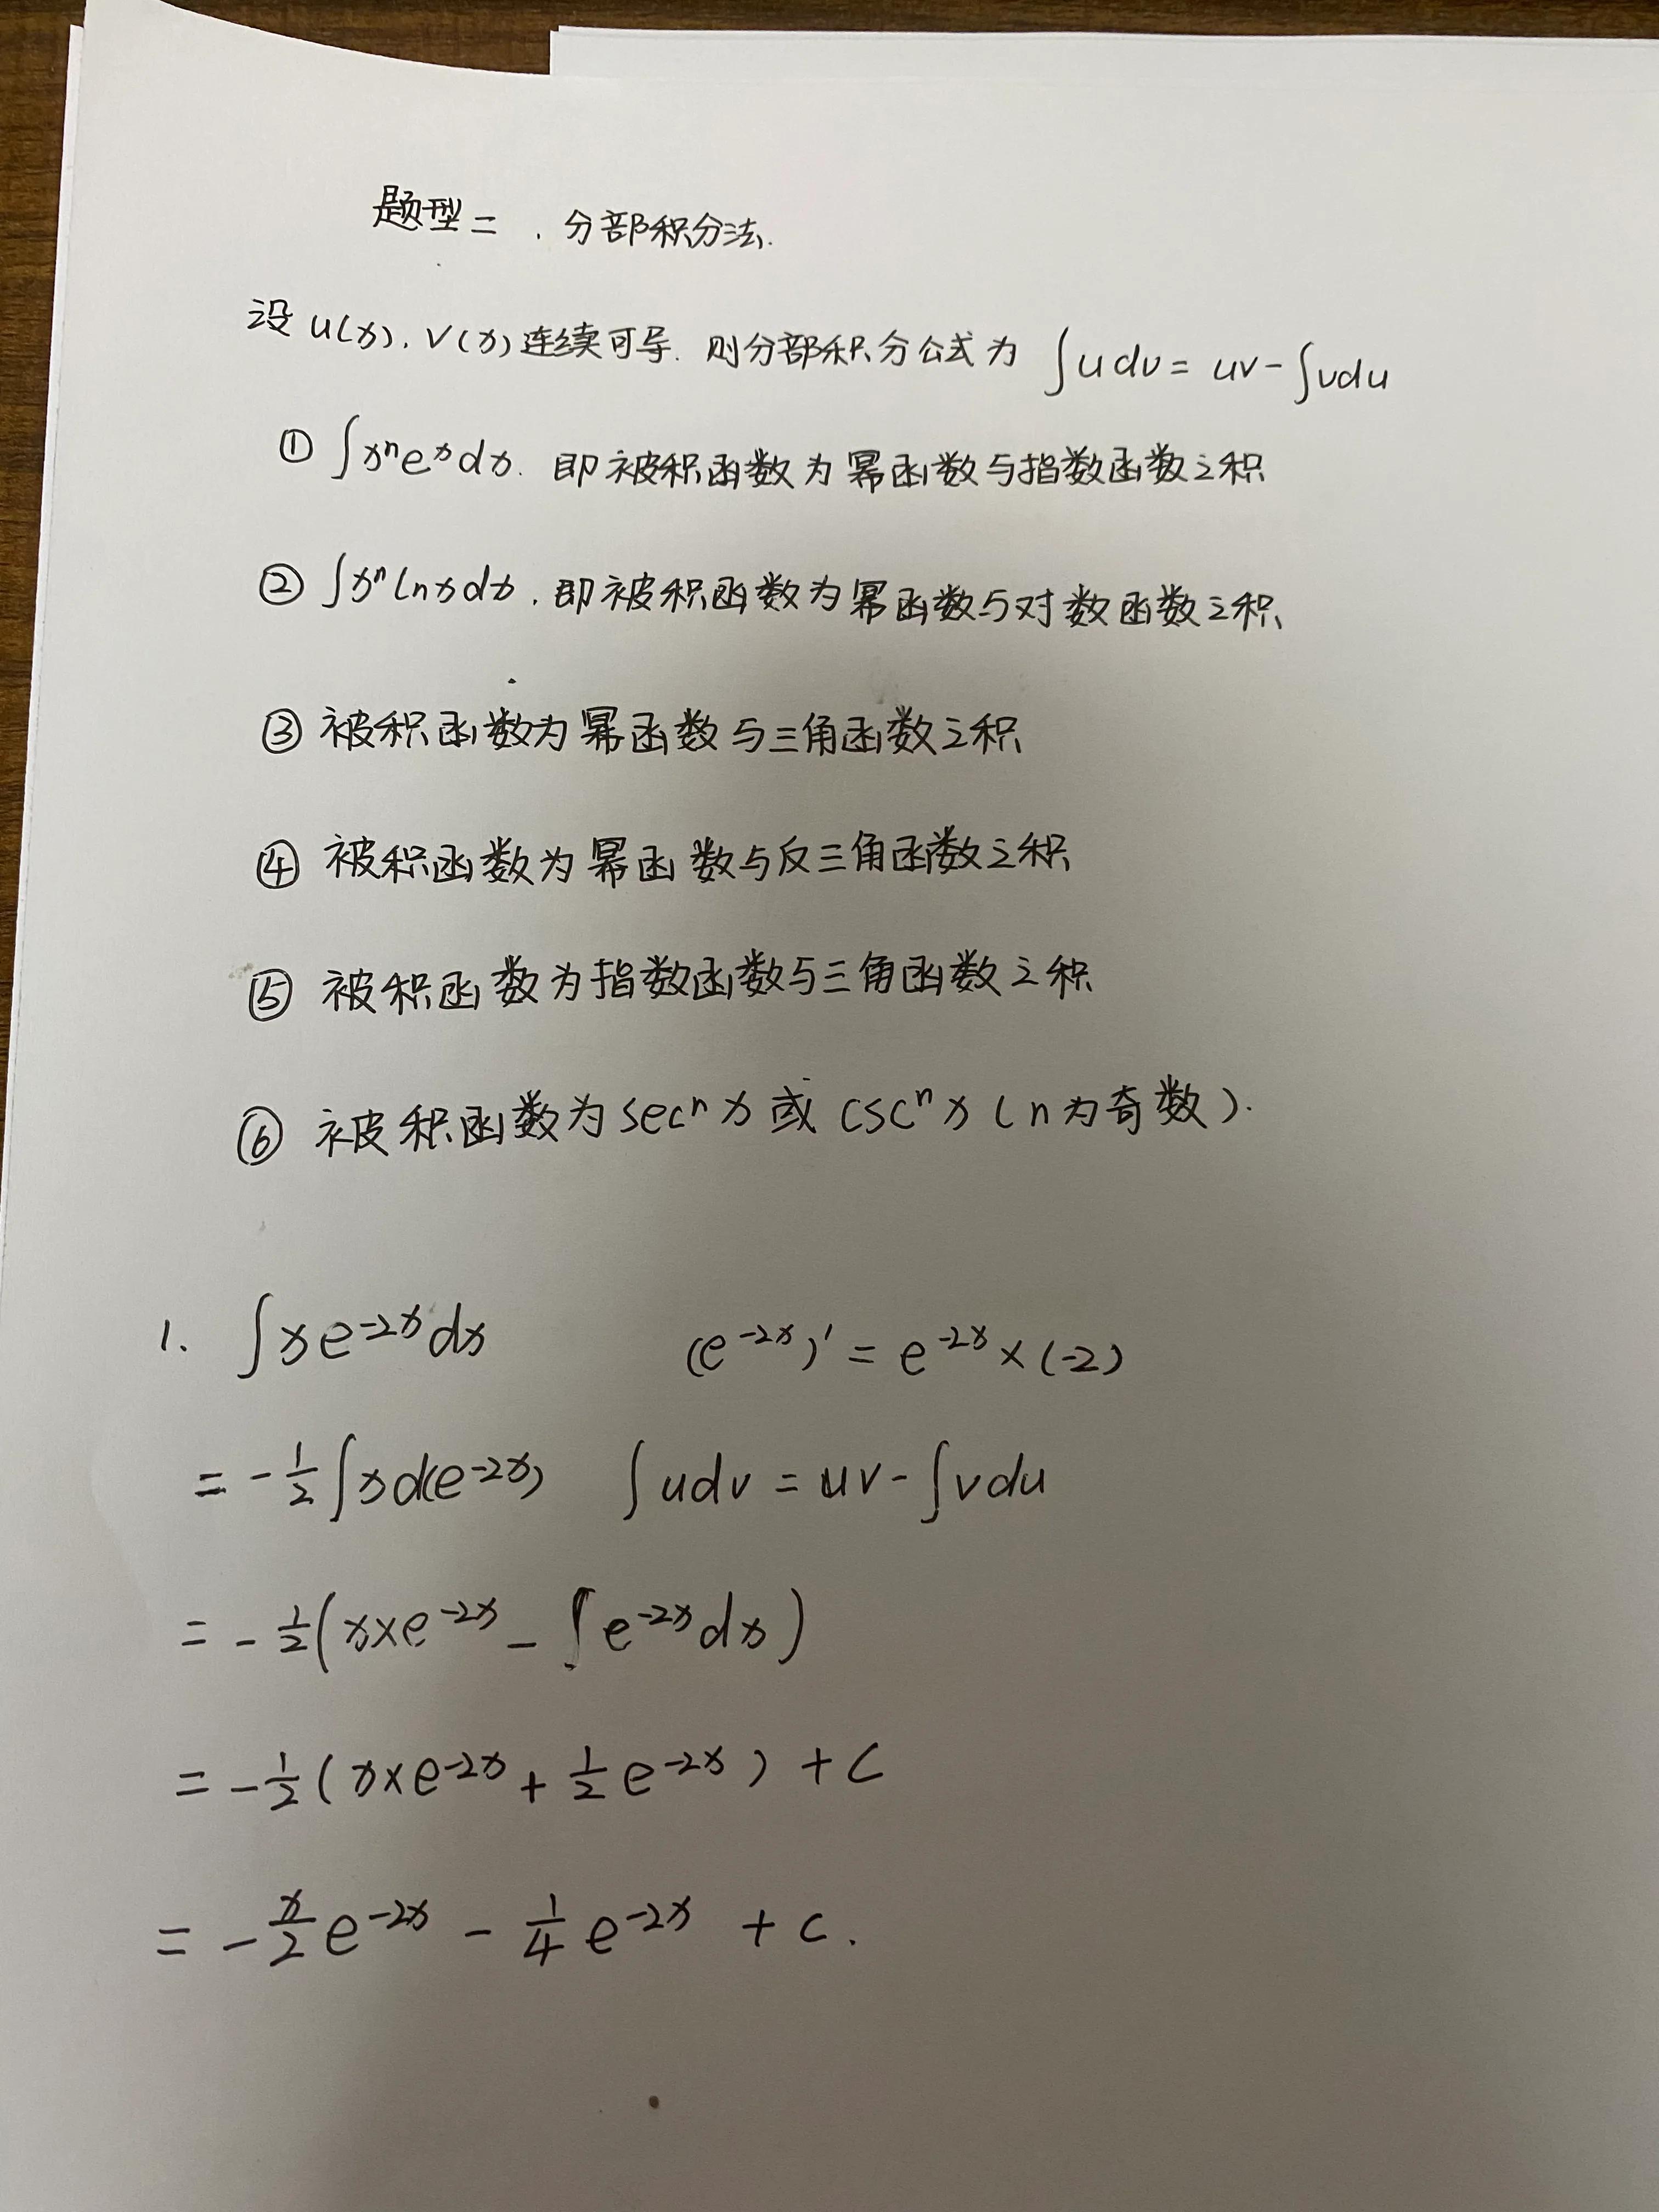 题型二、分部积分法.
设 u(x), v(x) 连续可导. 则分部积分公式为 ∫udv = uv - ∫vdu
① ∫xⁿeˣdx. 即被积函数为幂函数与指数函数之积
② ∫xⁿlnxdx. 即被积函数为幂函数与对数函数之积
③ 被积函数为幂函数与三角函数之积
④ 被积函数为幂函数与反三角函数之积
⑤ 被积函数为指数函数与三角函数之积
⑥ 被积函数为 secⁿx 或 cscⁿx (n为奇数).
1. ∫xe⁻²ˣdx (e⁻²ˣ)' = e⁻²ˣ×(-2)
= -1/2∫xd(e⁻²ˣ) ∫udv = uv - ∫vdu
= -1/2(x×e⁻²ˣ - ∫e⁻²ˣdx)
= -1/2(x×e⁻²ˣ + 1/2e⁻²ˣ) + C
= -x/2e⁻²ˣ - 1/4e⁻²ˣ + C.